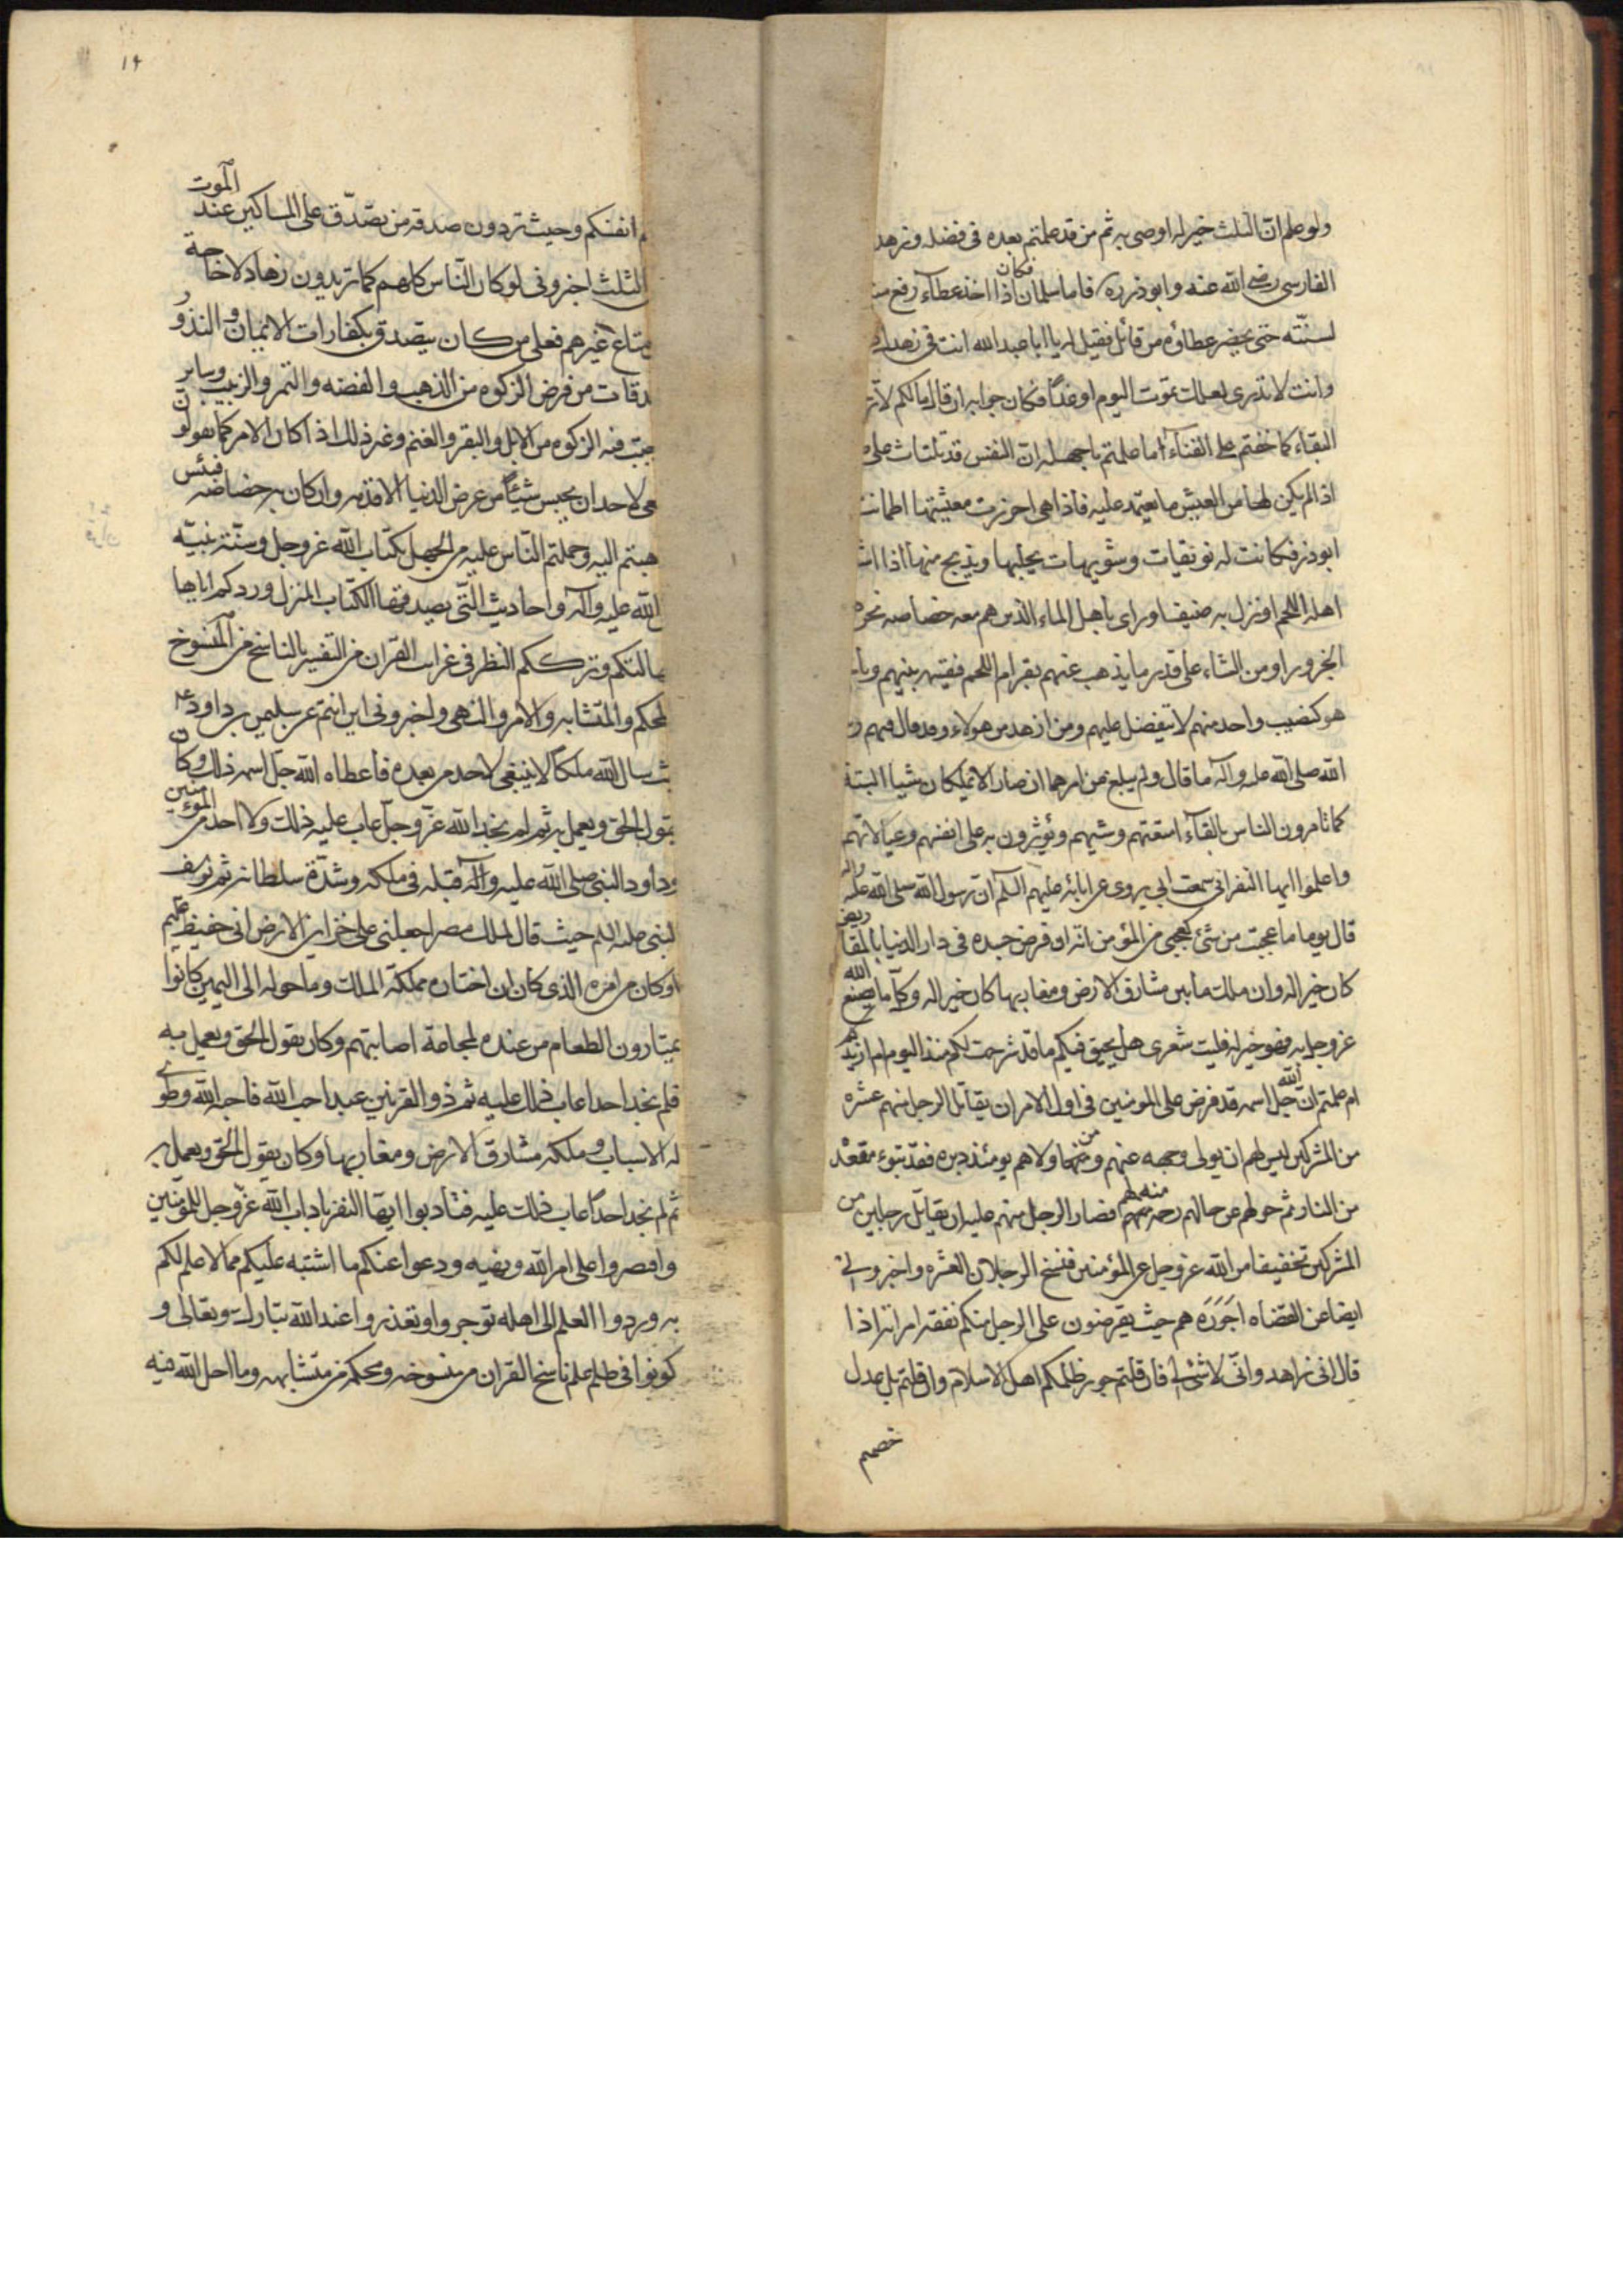 ولو علم ان الثلث خير له اوصى به ثم من قد علمتم بعده فى فضله وزهد
الفارسى رضى الله عنه وابوذر ره فاما سلمان فكان اذا اخذ عطآء رفع من
لسنته حتى يحضر عطاؤه من قابل فقيل له يا ابا عبد الله انت فى زهدك
وانت لا تدرى لعلك تموت اليوم او غداً فكان جوابه ان قال ما لكم لا تر
البقاء كما خفتم على الفنآء اما علمتم يا جهلة ان النفس قد تلتاث على
اذا لم يكن لها من العيش ما يعتمد عليه فاذا هى احرزت معيشتها اطمانت
ابوذر فكانت له نويقات وشويهات يحلبها ويذبح منها اذا اش
اهله اللحم او نزل به ضيف او راى باهل الماء الذين هم معه خصاصه نحر
الجزور او من الشاء على قدر ما يذهب عنهم بقرم اللحم فيقسمه بينهم ويا
هو كنصيب واحد منهم لا يتفضل عليهم ومن ازهد من هولاء وقد قال فيهم ر
الله صلى الله عليه وآله ما قال ولم يبلغ من امرهما ان صارا لا يملكان شيا البتة
كما تامرون الناس بالقآء امتعتهم وشيهم ويؤثرون به على انفسهم وعيالاتهم
واعلموا ايها النفر انى سمعت ابى يروى عن ابائه عليهم السلم ان رسول الله صلى الله عليه واله
قال يوما ما عجبت من شئ كعجبى من المؤمن انه ان قرض جسده فى دار الدنيا بالمقاريض
كان خير اله وان ملك ما بين مشارق الارض ومغاربها كان خير اله وكل ما يصنع الله
عز وجل به فهو خير له فليت شعرى هل يحيق فيكم ما قد شرحت لكم منذ اليوم ام ازيدكم
ام علمتم ان الله جل اسمه قد فرض على المومنين فى اول الامر ان يقاتل الرجل منهم عشره
من المشركين ليس لهم ان يولى وجهه عنهم ومن ولاهم يومئذ دبره فقد تبوء مقعده
من النار ثم حولهم عن حالهم رحمة منه لهم فصار الرجل منهم عليه ان يقاتل رجلين من
المشركين تخفيفا من الله عز وجل عن المؤمنين فنسخ الرجلان العشره واخبرونى
ايضا عن القضاه اجورة هم حيث يقرضون على الرجل منكم نفقه امراته اذا
قال انى زاهد وانى لا شئ لى فان قلتم جوره ظلمكم اهل الاسلام وان قلتم بل عدل
خصمتم
١٩
انفسكم وحيث تردون صدقه من تصدّق على المساكين عند الموت
الثلث اخبرونى لو كان النّاس كلهم كما تريدون زهاد لا حاجة
متاع غيرهم فعلى من كان يتصدق بكفارات الايمان والنذو
دقات من فرض الزكوه من الذهب والفضه والتمر والزبيب وساير
جبت فيه الزكوه من الابل والبقر والغنم وغير ذلك اذا كان الامر كما تقولون
غى لاحد ان يحبس شيئاً من عرض الدنيا الا قدمه وان كان به خصاصه فبئس
هبتم اليه وحملتم النّاس عليه من الجهل بكتاب الله عز وجل وسنّة نبيّه
الله عليه وآله واحاديثه التّى يصدقها الكتاب المنزل وردكم اياها
هالتكم وترككم النظر فى غرائب القرآن من التفسير بالناسخ من المنسوخ
لمحكم والمتشابه والامر والنهى واخبرونى اين انتم عن سليمن بن داود ع
ث سال الله ملكاً لا ينبغى لاحد من بعده فاعطاه الله جل اسمه ذلك وكان
يقول الحق ويعمل به ثم لم نجد الله عزّ وجلّ عاب عليه ذلك ولا احد من المؤمنين
وداود النبى صلى الله عليه وآله قبله فى ملكه وشدّة سلطانه ثم يوسف
لنبى عليه السلم حيث قال لملك مصر اجعلنى على خزاين الارض انى حفيظ عليم
وكان من امره الذى كان ان اختار مملكة الملك وما حوله الى اليمن كانوا
يمتارون الطعام من عنده لمجاعة اصابتهم وكان يقول الحق ويعمل به
فلم نجد احدا عاب ذلك عليه ثم ذو القرنين عبد احب الله فاحبه الله وطوى
له الاسباب وملكه مشارق الارض ومغاربها وكان يقول الحق ويعمل به
ثم لم نجد احداً عاب ذلك عليه فتادبوا ايّها النفر باداب الله عزّ وجل للمؤمنين
واقصروا على امر الله ونهيه ودعوا عنكم ما اشتبه عليكم مما لا علم لكم
به وردوا العلم الى اهله توجروا وتعذروا عند الله تبارك وتعالى و
كونوا فى طلب علم ناسخ القرآن من منسوخه ومحكمه من متشابهه وما احل الله فيه